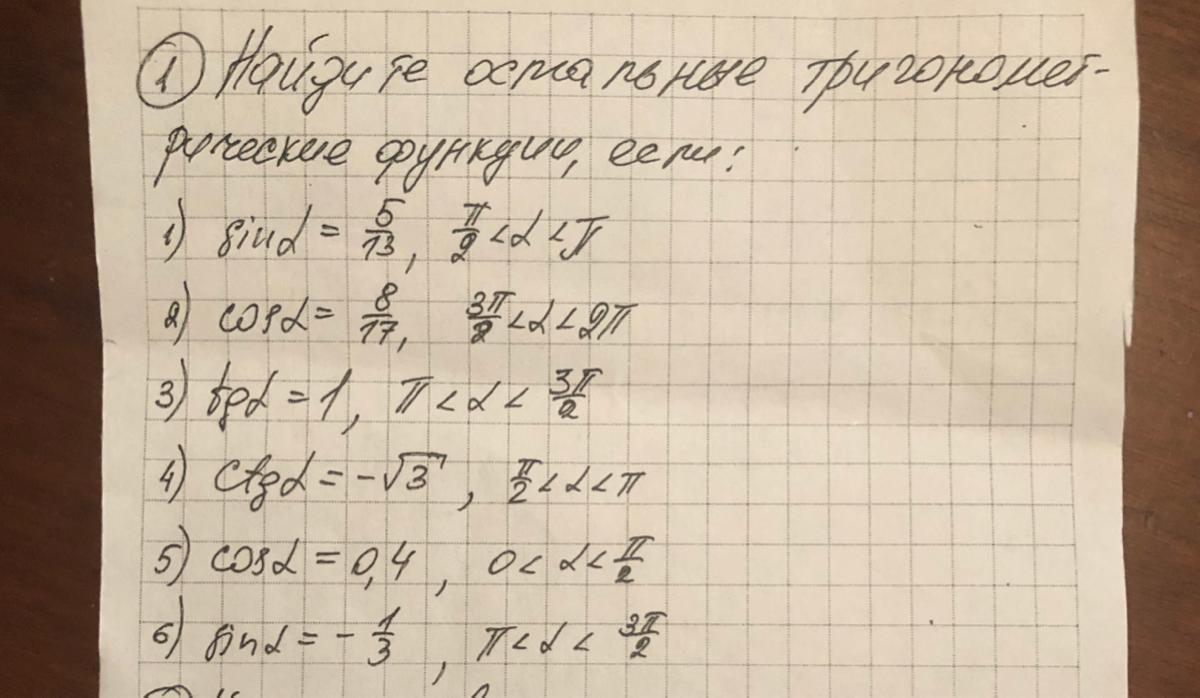 ① Найдите остальные тригономет-
рические функции, если:
1) sinα = 5/13, π/2 < α < π
2) cosα = 8/17, 3π/2 < α < 2π
3) tgα = 1, π < α < 3π/2
4) ctgα = -√3, π/2 < α < π
5) cosα = 0,4, 0 < α < π/2
6) sinα = - 1/3, π < α < 3π/2